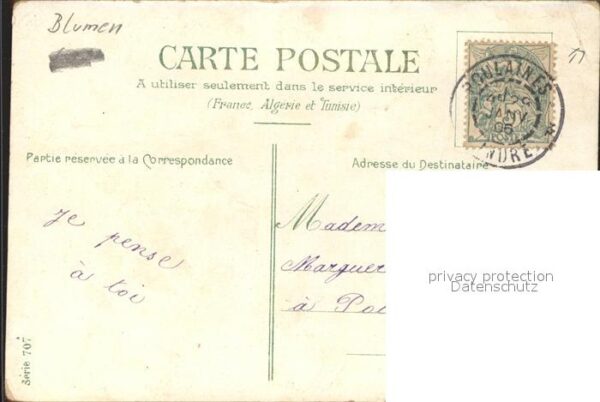 Blumen
CARTE POSTALE
A utiliser seulement dans le service intérieur
(France, Algerie et Tunisie)
POULAINES
JANV
05
INDRE
Partie reservée à la Correspondance
Adresse du Destinataire
Je pense
à toi
Madem
Marguer
à Pou
privacy protection
Datenschutz
Série 707